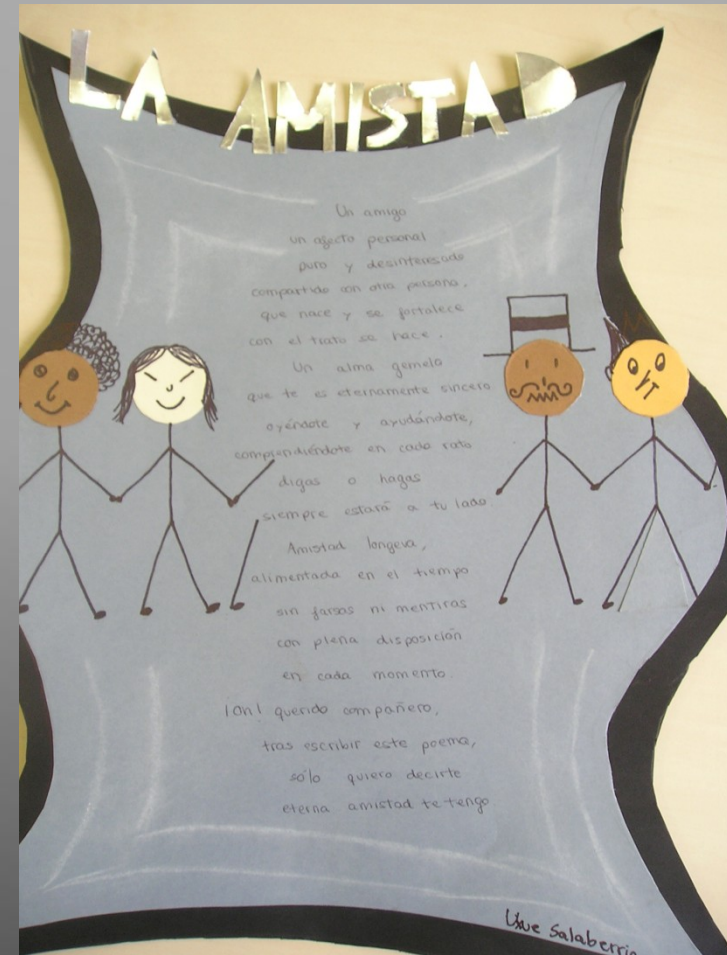 LA AMISTAD
Un amigo
un afecto personal
puro y desinteresado
compartido con otra persona,
que nace y se fortalece
con el trato se hace.
Un alma gemela
que te es eternamente sincero
oyéndote y ayudándote,
comprendiéndote en cada rato
digas o hagas
siempre estará a tu lado
Amistad longeva,
alimentada en el tiempo
sin farsas ni mentiras
con plena disposición
en cada momento.
¡Oh! querido compañero,
tras escribir este poema,
sólo quiero decirte
eterna amistad te tengo
Uxue Salaberria